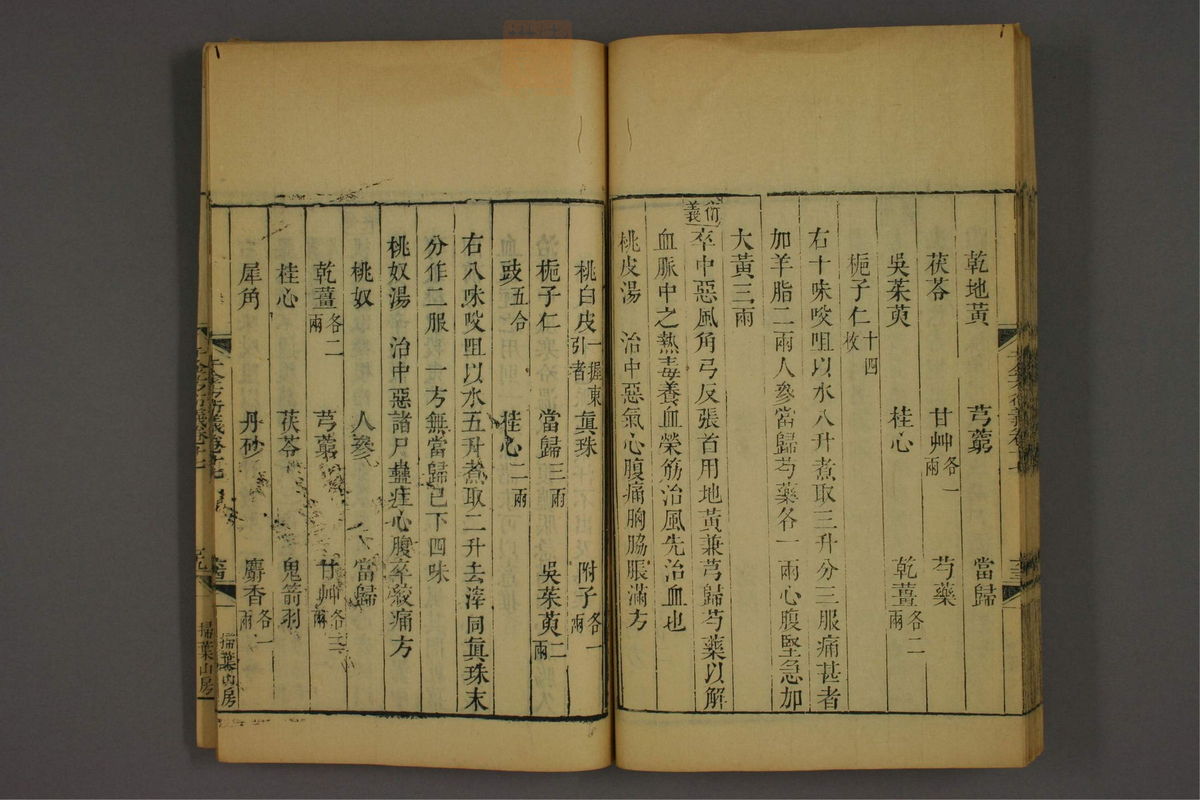 乾地黃 芎藭 當歸
茯苓 甘艸各一兩 芍藥
吳茱萸 桂心 乾薑各二兩
梔子仁十四枚
右十味㕮咀以水八升煮取三升分三服痛甚者
加羊脂二兩人參當歸芍藥各一兩心腹堅急加
大黃三兩
衍義
卒中惡風角弓反張首用地黃兼芎歸芍藥以解
血脈中之熱毒養血榮筋治風先治血也
桃皮湯 治中惡氣心腹痛胸脇脹滿方
桃白皮一握東引者 眞珠 附子各一兩
梔子仁 當歸三兩 吳茱萸二兩
豉五合 桂心二兩
右八味㕮咀以水五升煮取二升去滓同眞珠末
分作二服一方無當歸已下四味
桃奴湯 治中惡諸尸蠱疰心腹卒絞痛方
桃奴 人參 當歸
乾薑各二兩 芎藭 甘艸各三兩
桂心 茯苓 鬼箭羽
犀角 丹砂 麝香各一兩
千金方衍義卷十七
掃葉山房
掃葉山房